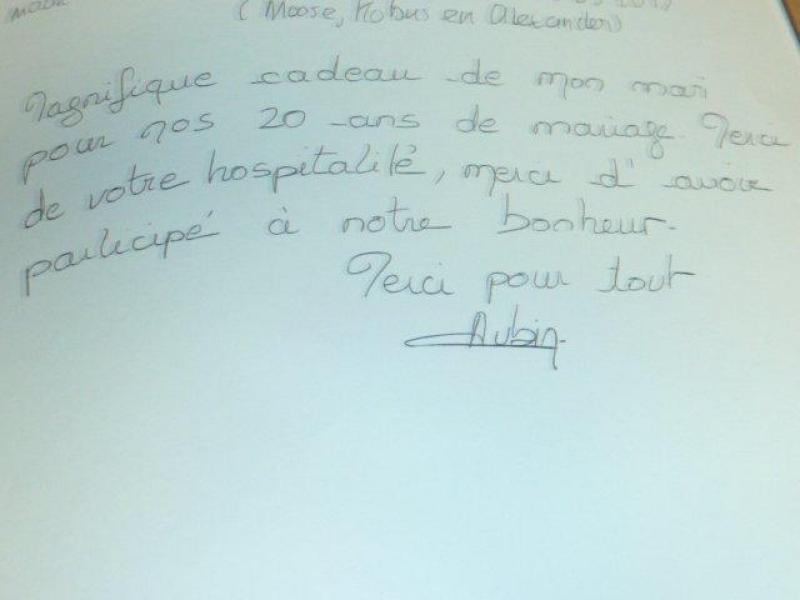 (Moose, Kobus en Alexander)
Magnifique cadeau de mon mari
pour nos 20 ans de mariage. Merci
de votre hospitalité, merci d'avoir
participé à notre bonheur.
Merci pour tout
Aubin.